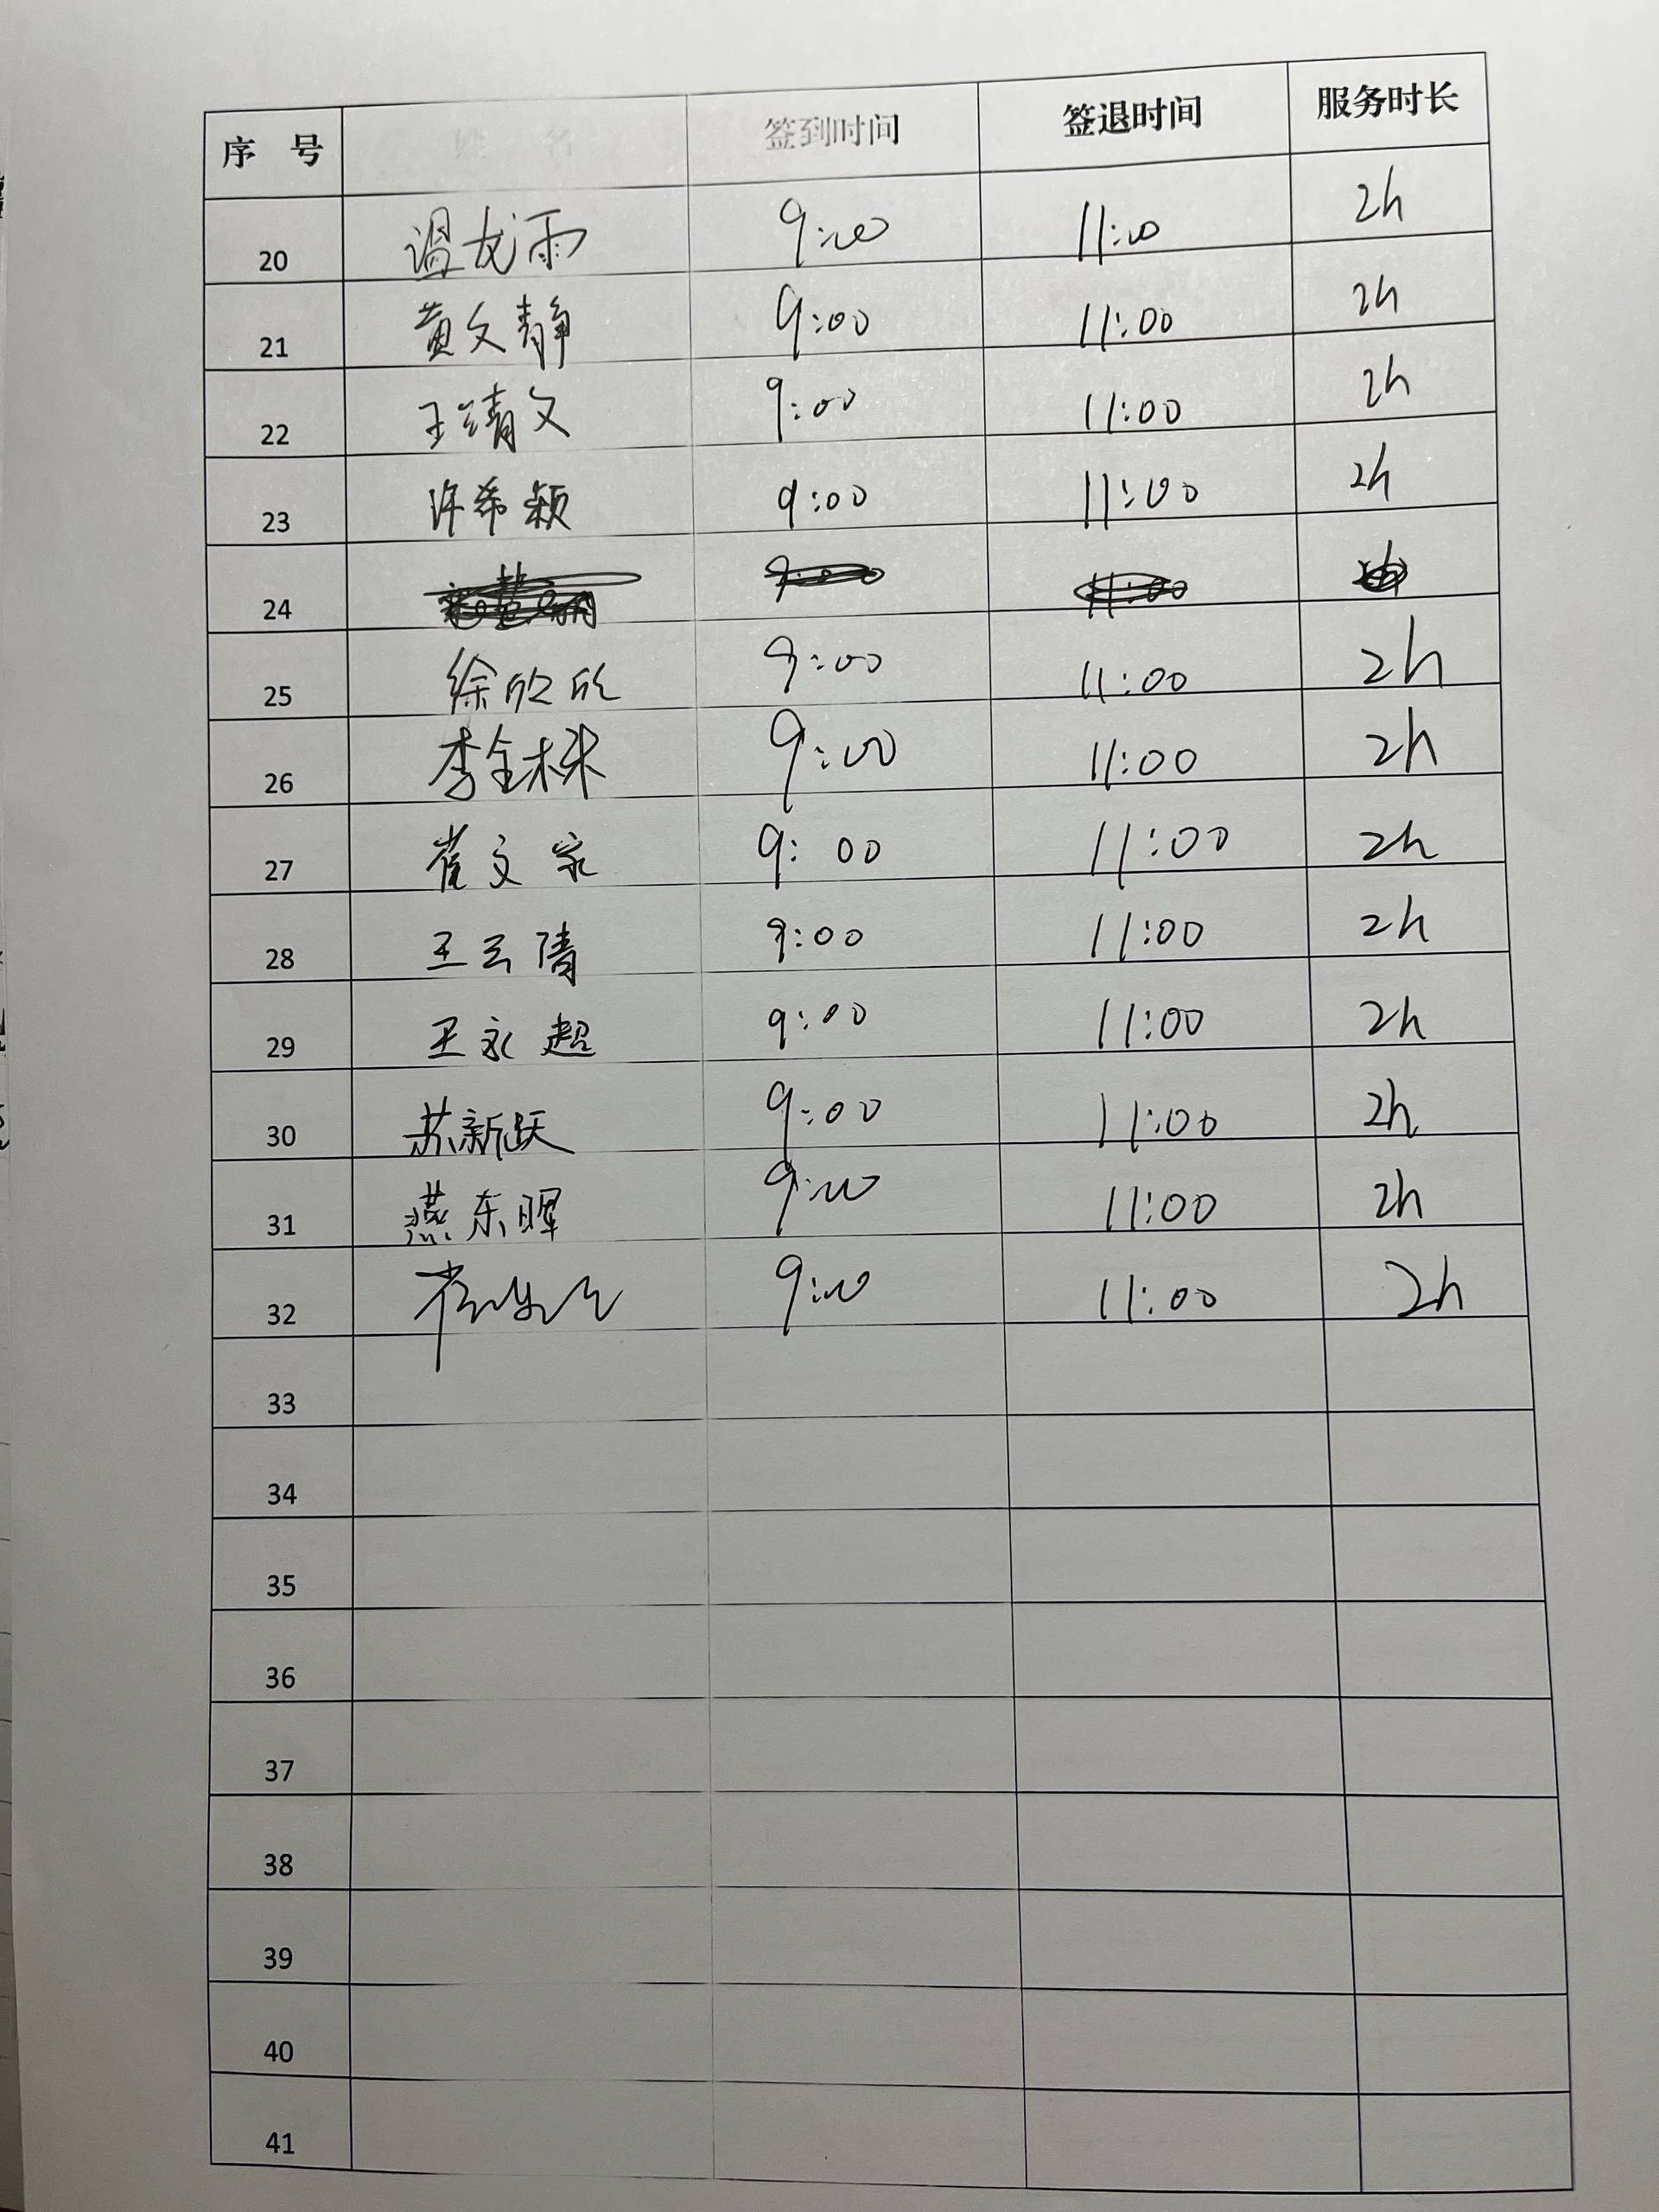 序 号 姓 名 签到时间 签退时间 服务时长
20 温龙雨 9:00 11:00 2h
21 黄文静 9:00 11:00 2h
22 王靖文 9:00 11:00 2h
23 许希颖 9:00 11:00 2h
24 9:00 11:00
25 徐欣欣 9:00 11:00 2h
26 李全林 9:00 11:00 2h
27 崔文家 9:00 11:00 2h
28 王云清 9:00 11:00 2h
29 王永超 9:00 11:00 2h
30 苏新跃 9:00 11:00 2h
31 燕东晖 9:00 11:00 2h
32 9:00 11:00 2h
33
34
35
36
37
38
39
40
41